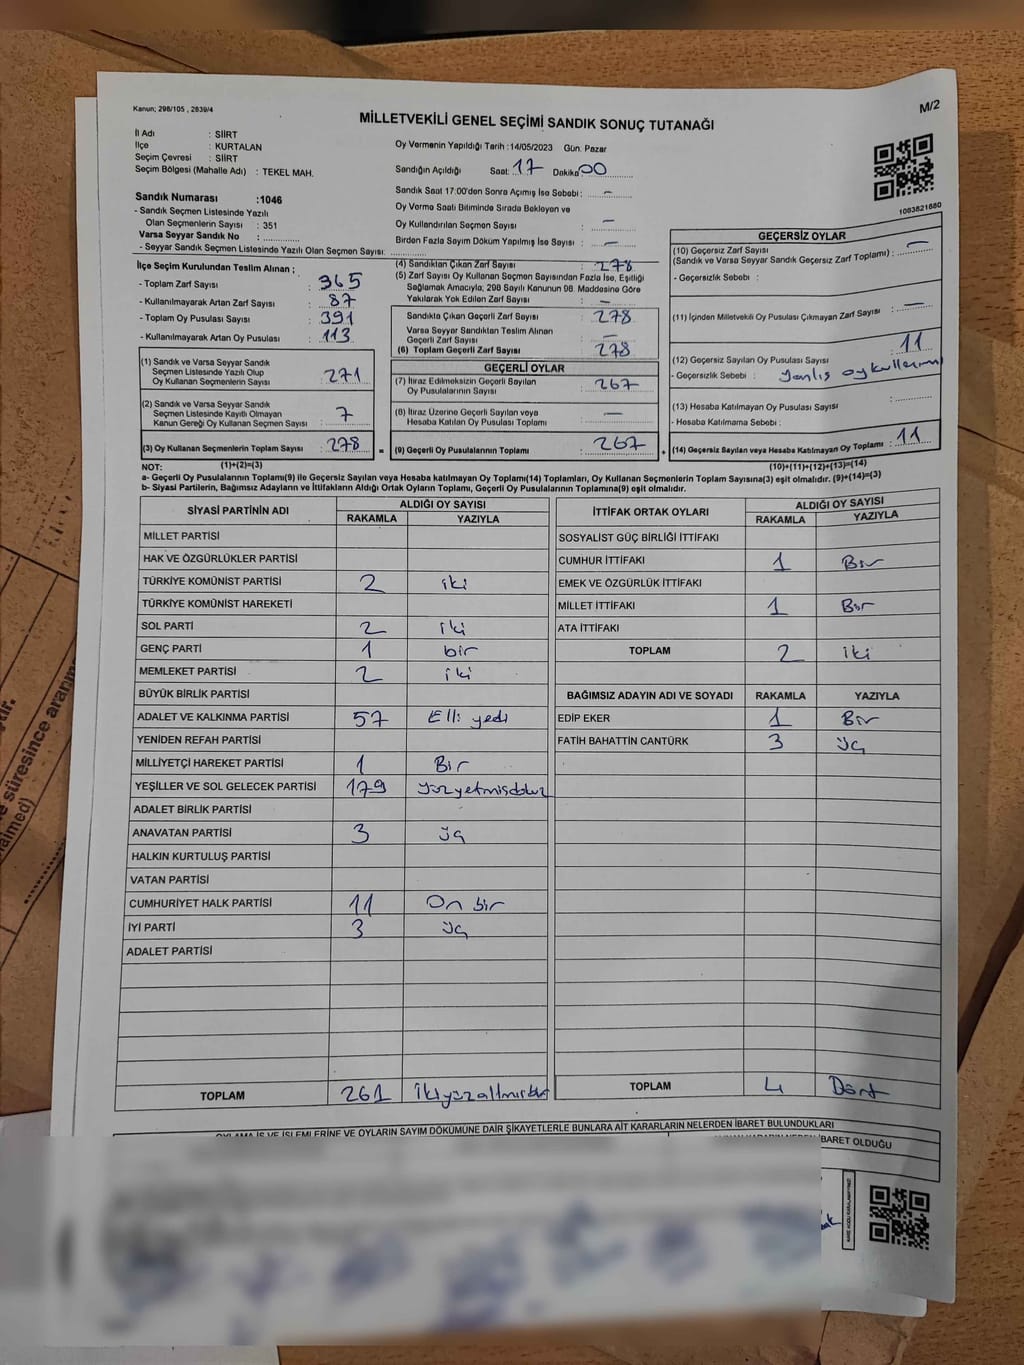 Kanun; 298/105 , 2839/4
M/2
MİLLETVEKİLİ GENEL SEÇİMİ SANDIK SONUÇ TUTANAĞI
İl Adı : SİİRT
İlçe : KURTALAN
Seçim Çevresi : SİİRT
Seçim Bölgesi (Mahalle Adı) : TEKEL MAH.
Oy Vermenin Yapıldığı Tarih :14/05/2023 Gün. Pazar
Sandığın Açıldığı Saat: 17 Dakika 00
Sandık Saat 17:00'den Sonra Açımış İse Sebebi : –
Oy Verme Saati Bitiminde Sırada Bekleyen ve
Oy Kullandırılan Seçmen Sayısı : –
Birden Fazla Sayım Döküm Yapılmış İse Sayısı : –
1003821680
Sandık Numarası :1046
- Sandık Seçmen Listesinde Yazılı
Olan Seçmenlerin Sayısı : 351
Varsa Seyyar Sandık No :
- Seyyar Sandık Seçmen Listesinde Yazılı Olan Seçmen Sayısı.
İlçe Seçim Kurulundan Teslim Alınan ;
- Toplam Zarf Sayısı : 365
- Kullanılmayarak Artan Zarf Sayısı : 87
- Toplam Oy Pusulası Sayısı : 391
- Kullanılmayarak Artan Oy Pusulası : 113
(1) Sandık ve Varsa Seyyar Sandık
Seçmen Listesinde Yazılı Olup
Oy Kullanan Seçmenlerin Sayısı : 271
(2) Sandık ve Varsa Seyyar Sandık
Seçmen Listesinde Kayıtlı Olmayan
Kanun Gereği Oy Kullanan Seçmen Sayısı : 7
(3) Oy Kullanan Seçmenlerin Toplam Sayısı : 278
(4) Sandıktan Çıkan Zarf Sayısı : 278
(5) Zarf Sayısı Oy Kullanan Seçmen Sayısından Fazla İse, Eşitliği
Sağlamak Amacıyla; 298 Sayılı Kanunun 98. Maddesine Göre
Yakılarak Yok Edilen Zarf Sayısı : –
Sandıkta Çıkan Geçerli Zarf Sayısı : 278
Varsa Seyyar Sandıktan Teslim Alınan
Geçerli Zarf Sayısı : –
(6) Toplam Geçerli Zarf Sayısı : 278
GEÇERLİ OYLAR
(7) İtiraz Edilmeksizin Geçerli Sayılan
Oy Pusulalarının Sayısı : 267
(8) İtiraz Üzerine Geçerli Sayılan veya
Hesaba Katılan Oy Pusulası Toplamı : –
= (9) Geçerli Oy Pusulalarının Toplamı : 267
GEÇERSİZ OYLAR
(10) Geçersiz Zarf Sayısı
(Sandık ve Varsa Seyyar Sandık Geçersiz Zarf Toplamı) : –
- Geçersizlik Sebebi :
(11) İçinden Milletvekili Oy Pusulası Çıkmayan Zarf Sayısı : –
(12) Geçersiz Sayılan Oy Pusulası Sayısı : 11
- Geçersizlik Sebebi : Yanlış oy kullanımı
(13) Hesaba Katılmayan Oy Pusulası Sayısı :
- Hesaba Katılmama Sebebi :
+ (14) Geçersiz Sayılan veya Hesaba Katılmayan Oy Toplamı : 11
NOT: (1)+(2)=(3) (10)+(11)+(12)+(13)=(14)
a- Geçerli Oy Pusulalarının Toplamı(9) ile Geçersiz Sayılan veya Hesaba katılmayan Oy Toplamı(14) Toplamları, Oy Kullanan Seçmenlerin Toplam Sayısına(3) eşit olmalıdır. (9)+(14)=(3)
b- Siyasi Partilerin, Bağımsız Adayların ve İttifakların Aldığı Oyların Toplamı, Geçerli Oy Pusulalarının Toplamına(9) eşit olmalıdır.
SİYASİ PARTİNİN ADI ALDIĞI OY SAYISI
RAKAMLA YAZIYLA
MİLLET PARTİSİ
HAK VE ÖZGÜRLÜKLER PARTİSİ
TÜRKİYE KOMÜNİST PARTİSİ 2 iki
TÜRKİYE KOMÜNİST HAREKETİ
SOL PARTİ 2 iki
GENÇ PARTİ 1 bir
MEMLEKET PARTİSİ 2 iki
BÜYÜK BİRLİK PARTİSİ
ADALET VE KALKINMA PARTİSİ 57 Elli yedi
YENİDEN REFAH PARTİSİ
MİLLİYETÇİ HAREKET PARTİSİ 1 Bir
YEŞİLLER VE SOL GELECEK PARTİSİ 179 Yüzyetmişdokuz
ADALET BİRLİK PARTİSİ
ANAVATAN PARTİSİ 3 üç
HALKIN KURTULUŞ PARTİSİ
VATAN PARTİSİ
CUMHURİYET HALK PARTİSİ 11 On bir
İYİ PARTİ 3 üç
ADALET PARTİSİ
TOPLAM 261 İkiyüzaltmışbir
İTTİFAK ORTAK OYLARI ALDIĞI OY SAYISI
RAKAMLA YAZIYLA
SOSYALIST GÜÇ BİRLİĞİ İTTİFAKI
CUMHUR İTTİFAKI 1 Bir
EMEK VE ÖZGÜRLÜK İTTİFAKI
MİLLET İTTİFAKI 1 Bir
ATA İTTİFAKI
TOPLAM 2 iki
BAĞIMSIZ ADAYIN ADI VE SOYADI RAKAMLA YAZIYLA
EDİP EKER 1 Bir
FATİH BAHATTİN CANTÜRK 3 üç
TOPLAM 4 Dört
OYLAMA İŞ VE İŞLEMLERİNE VE OYLARIN SAYIM DÖKÜMÜNE DAİR ŞİKAYETLERLE BUNLARA AİT KARARLARIN NELERDEN İBARET BULUNDUKLARI
İBARET OLDUĞU
süresince aranır